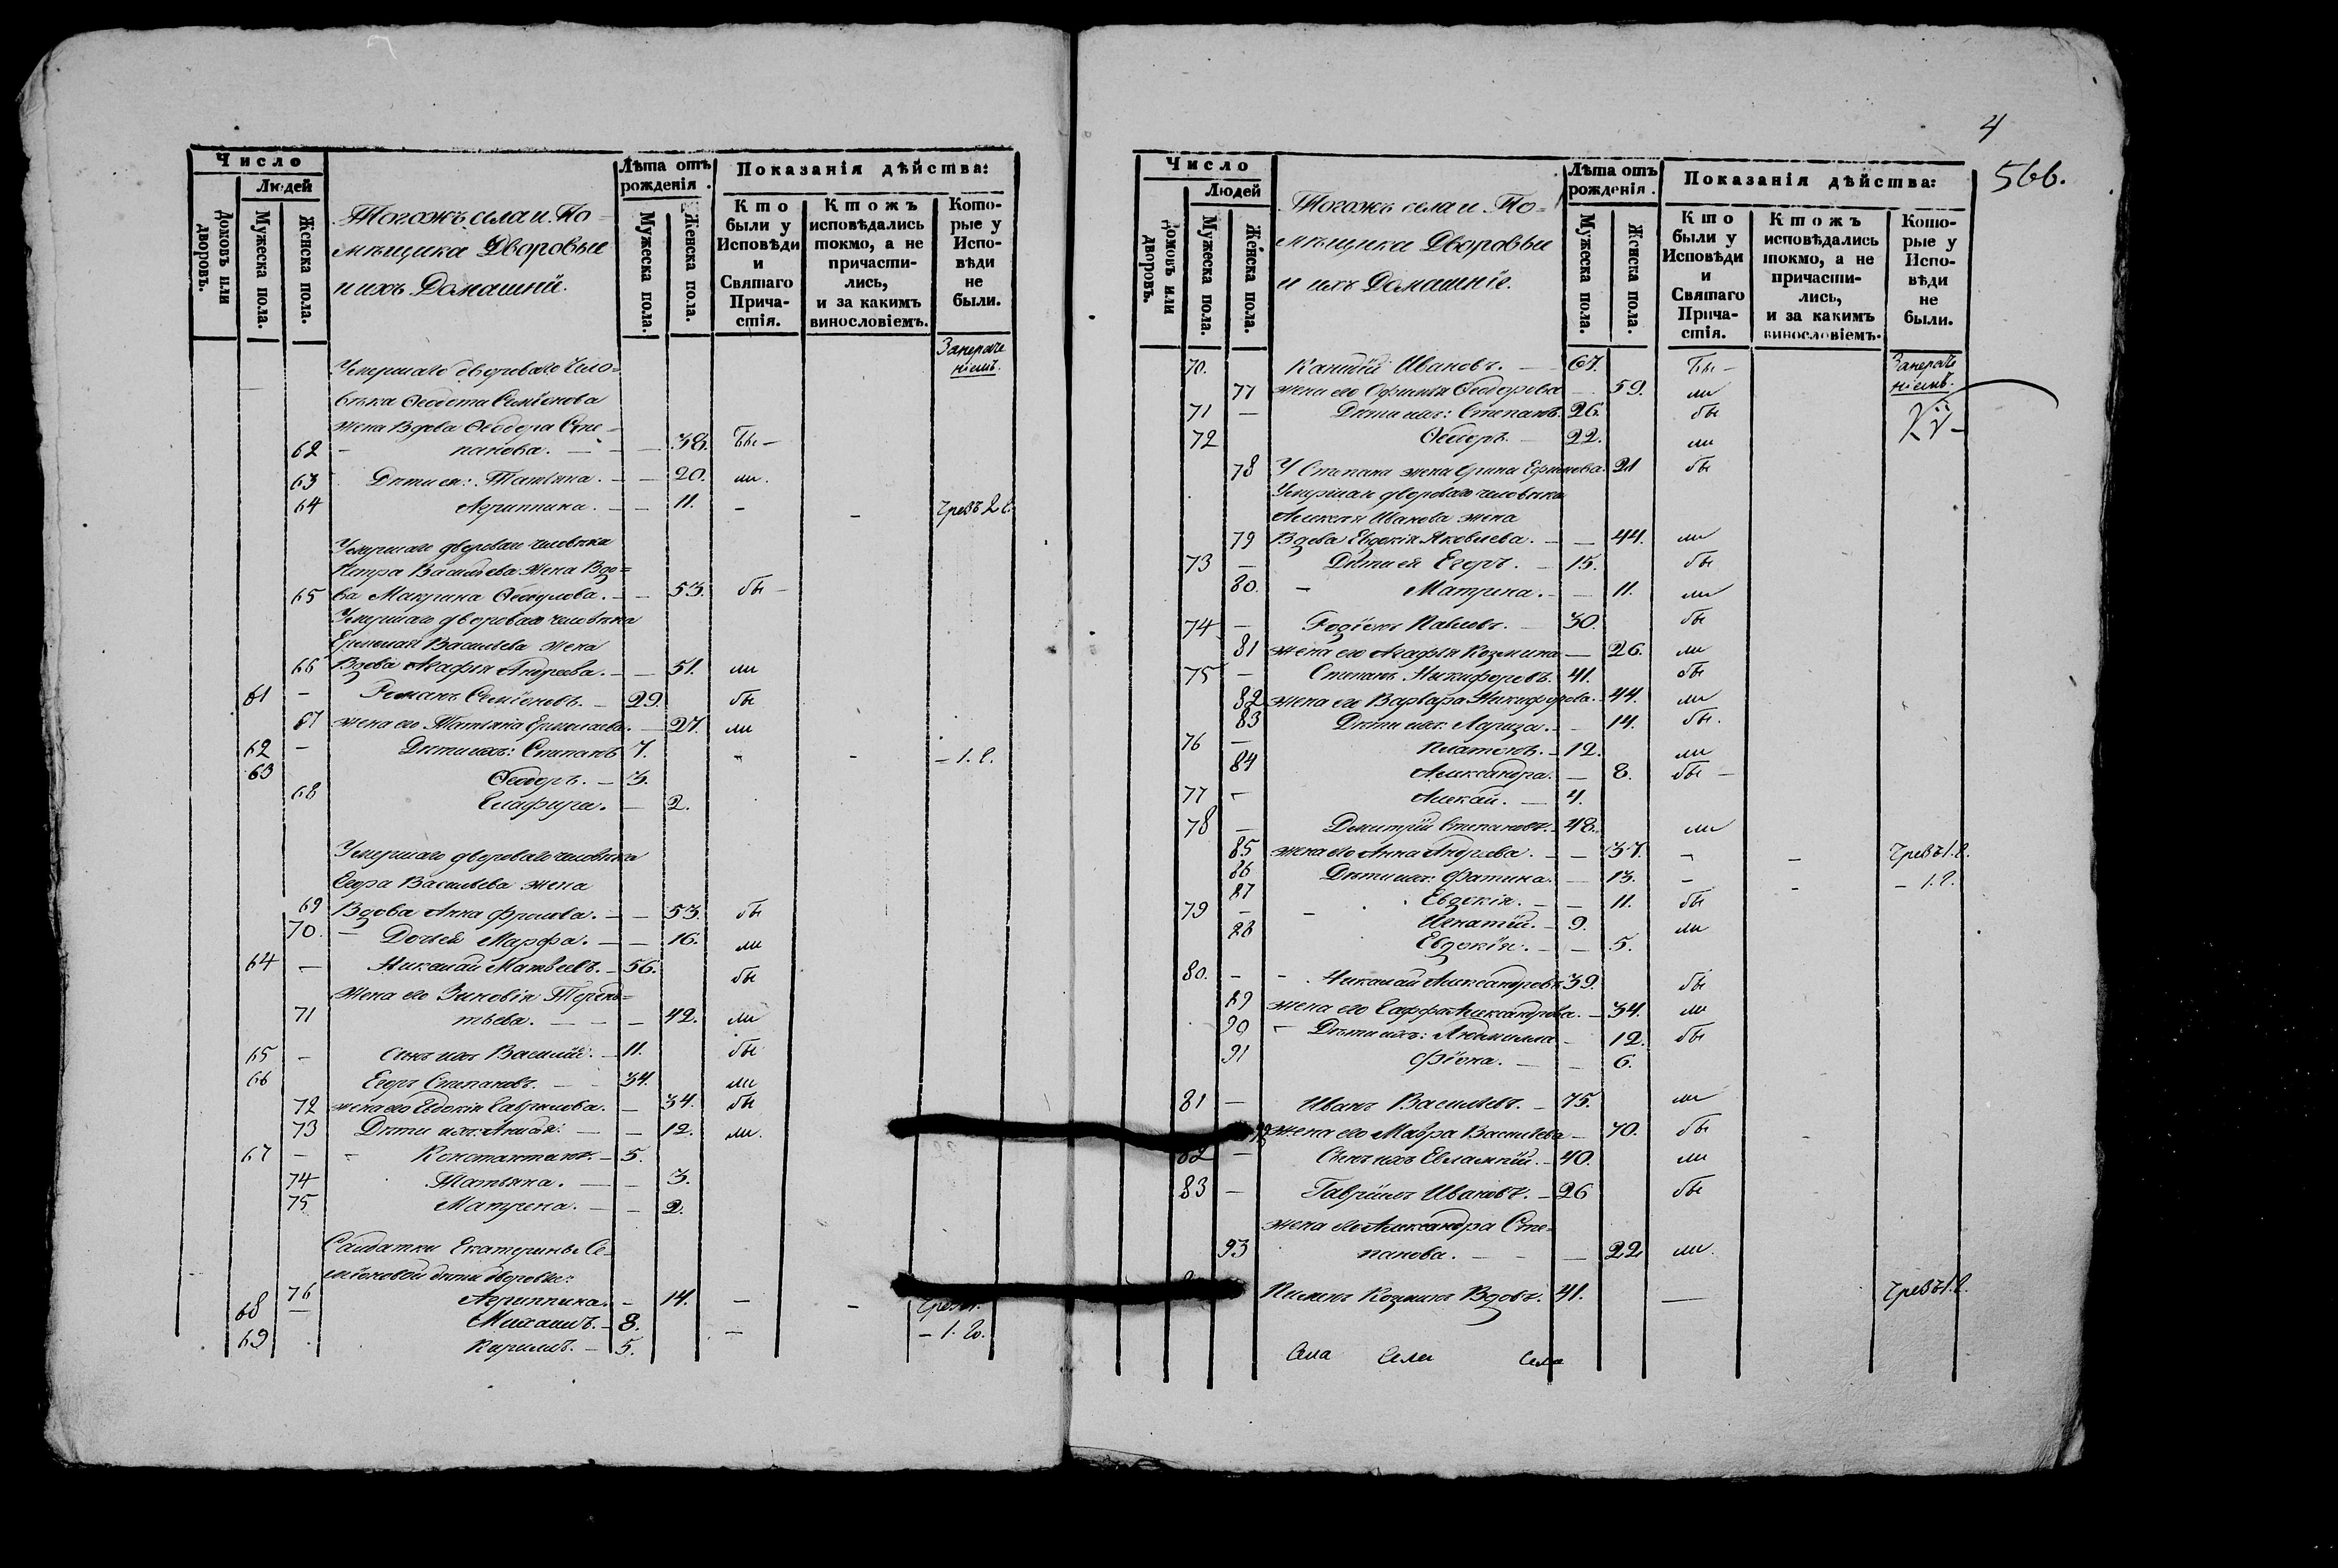 Число
Людей
Домовъ или дворовъ.
Мужеска пола.
Женска пола.
Тогожъ села и По=
мѣщика Дворовые
и ихъ Домашнiи.
Лѣта отъ рожденiя.
Мужеска пола.
Женска пола.
Показанiя дѣйства:
Кто были у Исповѣди и Святаго Причастiя.
Ктожъ исповѣдались токмо, а не причастились, и за какимъ винословiемъ.
Которые у Исповѣди не были.
Умершаго двороваго чело=
вѣка Ѳеодота Семiонова
жена Вдова Ѳеодора Сте=
62 - панова. 38. бы-
63 Дѣти ея: Татiяна. 20. ли.
64 Агриппина. 11. - -
Умершаго двороваго человѣка
Петра Васильева жена Вдо=
65 ва Макрина 53. бы-
Умершаго двороваго человѣка
Ермолая Васильева жена
66 Вдова Агафiя Андреева. 51. ли
61 - Романъ Семiоновъ. 29. бы
67 жена его Татiяна Ермолаева. 27. ли
62 - Дѣти ихъ: Степанъ 7. - - - 1. г.
63 Ѳеодоръ. 3.
68 Глафира. 2.
Умершаго двороваго человѣка
Егора Васильева жена
69 Вдова Анна Фролова. 53. бы
70. - Дочь ея Марфа. 16. ли
64 - Николай Матвеевъ. 56. бы
жена его Зиновiя Терен=
71 тьева. 42. ли
65 - Сынъ ихъ Василiй. 11. бы
66 Егоръ Степановъ. 34. ли
72 жена его Евдокiя Гаврилова. 34. бы
73 Дѣти ихъ: 12. ли.
67 - - Константинъ. 5.
74 Татiяна. 3.
75 Матрена. 2.
Салдатки Екатерины Се=
мiоновой дѣти дворовые:
76 Агриппина. 14. - -
68 - Михаилъ. 8. - - 1. г.
69 Кирилъ. 5.
4
566.
Число
Людей
Домовъ или дворовъ.
Мужеска пола.
Женска пола.
Тогожъ села и По=
мѣщика Дворовые
и ихъ Домашнiе.
Лѣта отъ рожденiя.
Мужеска пола.
Женска пола.
Показанiя дѣйства:
Кто были у Исповѣди и Святаго Причастiя.
Ктожъ исповѣдались токмо, а не причастились, и за какимъ винословiемъ.
Которые у Исповѣди не были.
70. Ивановъ. 67. бы-
77 жена его Ѳеодорова 59. ли
71 - Дѣти ихъ: Степанъ. 26. бы
72 Ѳеодоръ. 22. ли
78 У Степана жена 21 бы
Умершаго двороваго человѣка
Алексѣя Иванова жена
79 Вдова Евдокiя Яковлева. 44. ли
73 - Дѣти ея Егоръ. 15. бы
80. - Матрина. 11. ли
74 - Родiонъ Павловъ. 30. бы
81 жена его Агафiя Козмина 26. ли
75 - Степанъ Никифоровъ. 41. бы
82 жена его Варвара Никифорова. 44. ли
83 Дѣти ихъ: Лариса. 14. бы.
76 - Платонъ. 12. ли
84 Александра. 8. бы -
77 - Алексѣй. 4.
78 - Димитрiй Степановъ. 48. ли
85 жена его Анна Андреева. 37. - -
86 Дѣти ихъ: Фатина. 13. - - - 1. г.
87 Евдокiя. 11. бы
79 - - Игнатiй. 9. ли
88 Евдокiя. 5.
80. - - Николай Александровъ. 39. бы
89 жена его Александрова. 34. ли
90 - Дѣти ихъ: Людмилла 12. бы
91 Фiона. 6.
81 - Иванъ Васильевъ. 75. ли
жена его Мавра Васильева 70. бы
82 - Сынъ ихъ Евлампiй. 40. ли
83 - Гаврiилъ Ивановъ. 26 бы
жена его Александра Сте=
93 панова. 22 ли.
Пименъ Козминъ Вдовъ. 41. -
Села Села Села